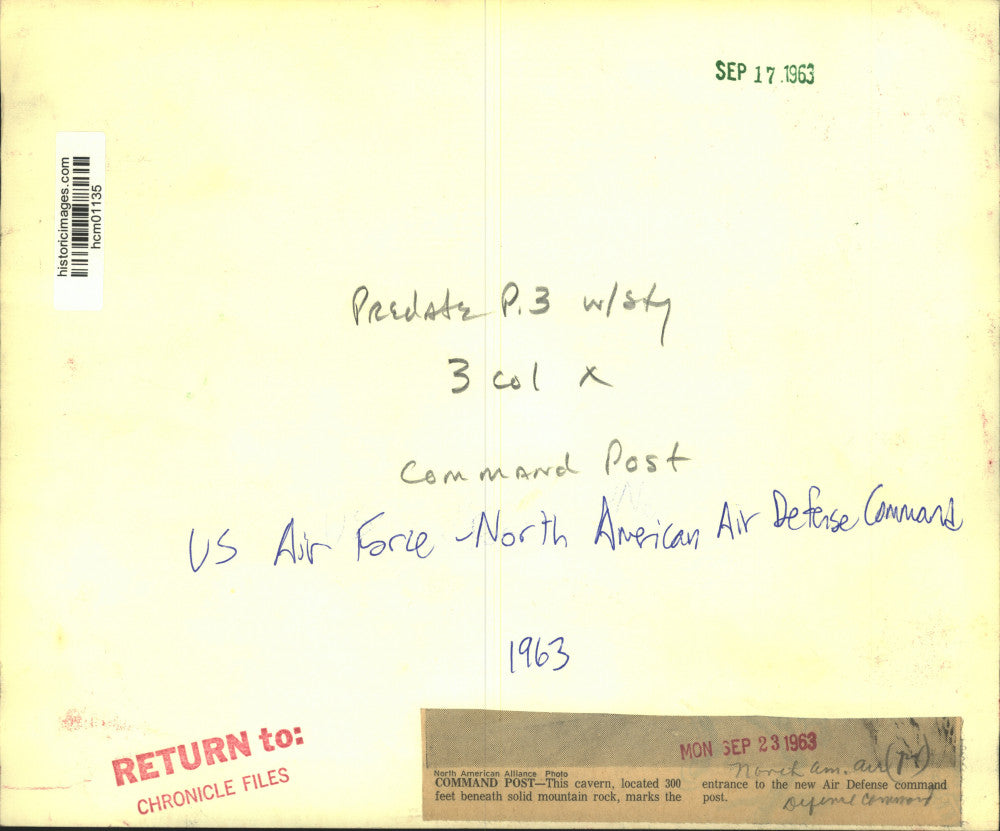 SEP 17 1963
historicimages.com
hcm01135
Predate P.3 w/sty
3 col x
Command Post
US Air Force - North American Air Defense Command
1963
RETURN to:
CHRONICLE FILES
MON SEP 23 1963
North am. air
Defense command
North American Alliance Photo
COMMAND POST—This cavern, located 300
feet beneath solid mountain rock, marks the
entrance to the new Air Defense command
post.